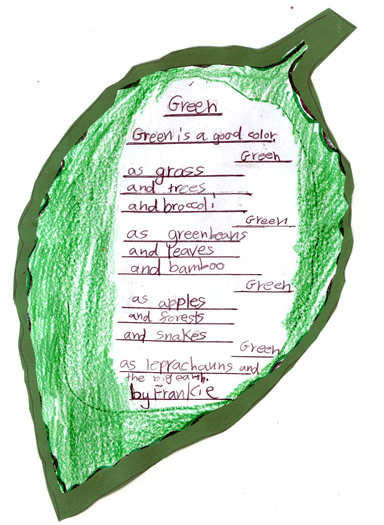 Green
Green is a good color
Green
as grass
and trees
and broccoli
Green
as greenbeans
and leaves
and bamboo
Green
as apples
and forests
and snakes
Green
as leprachauns and
the big earth.
by Frankie